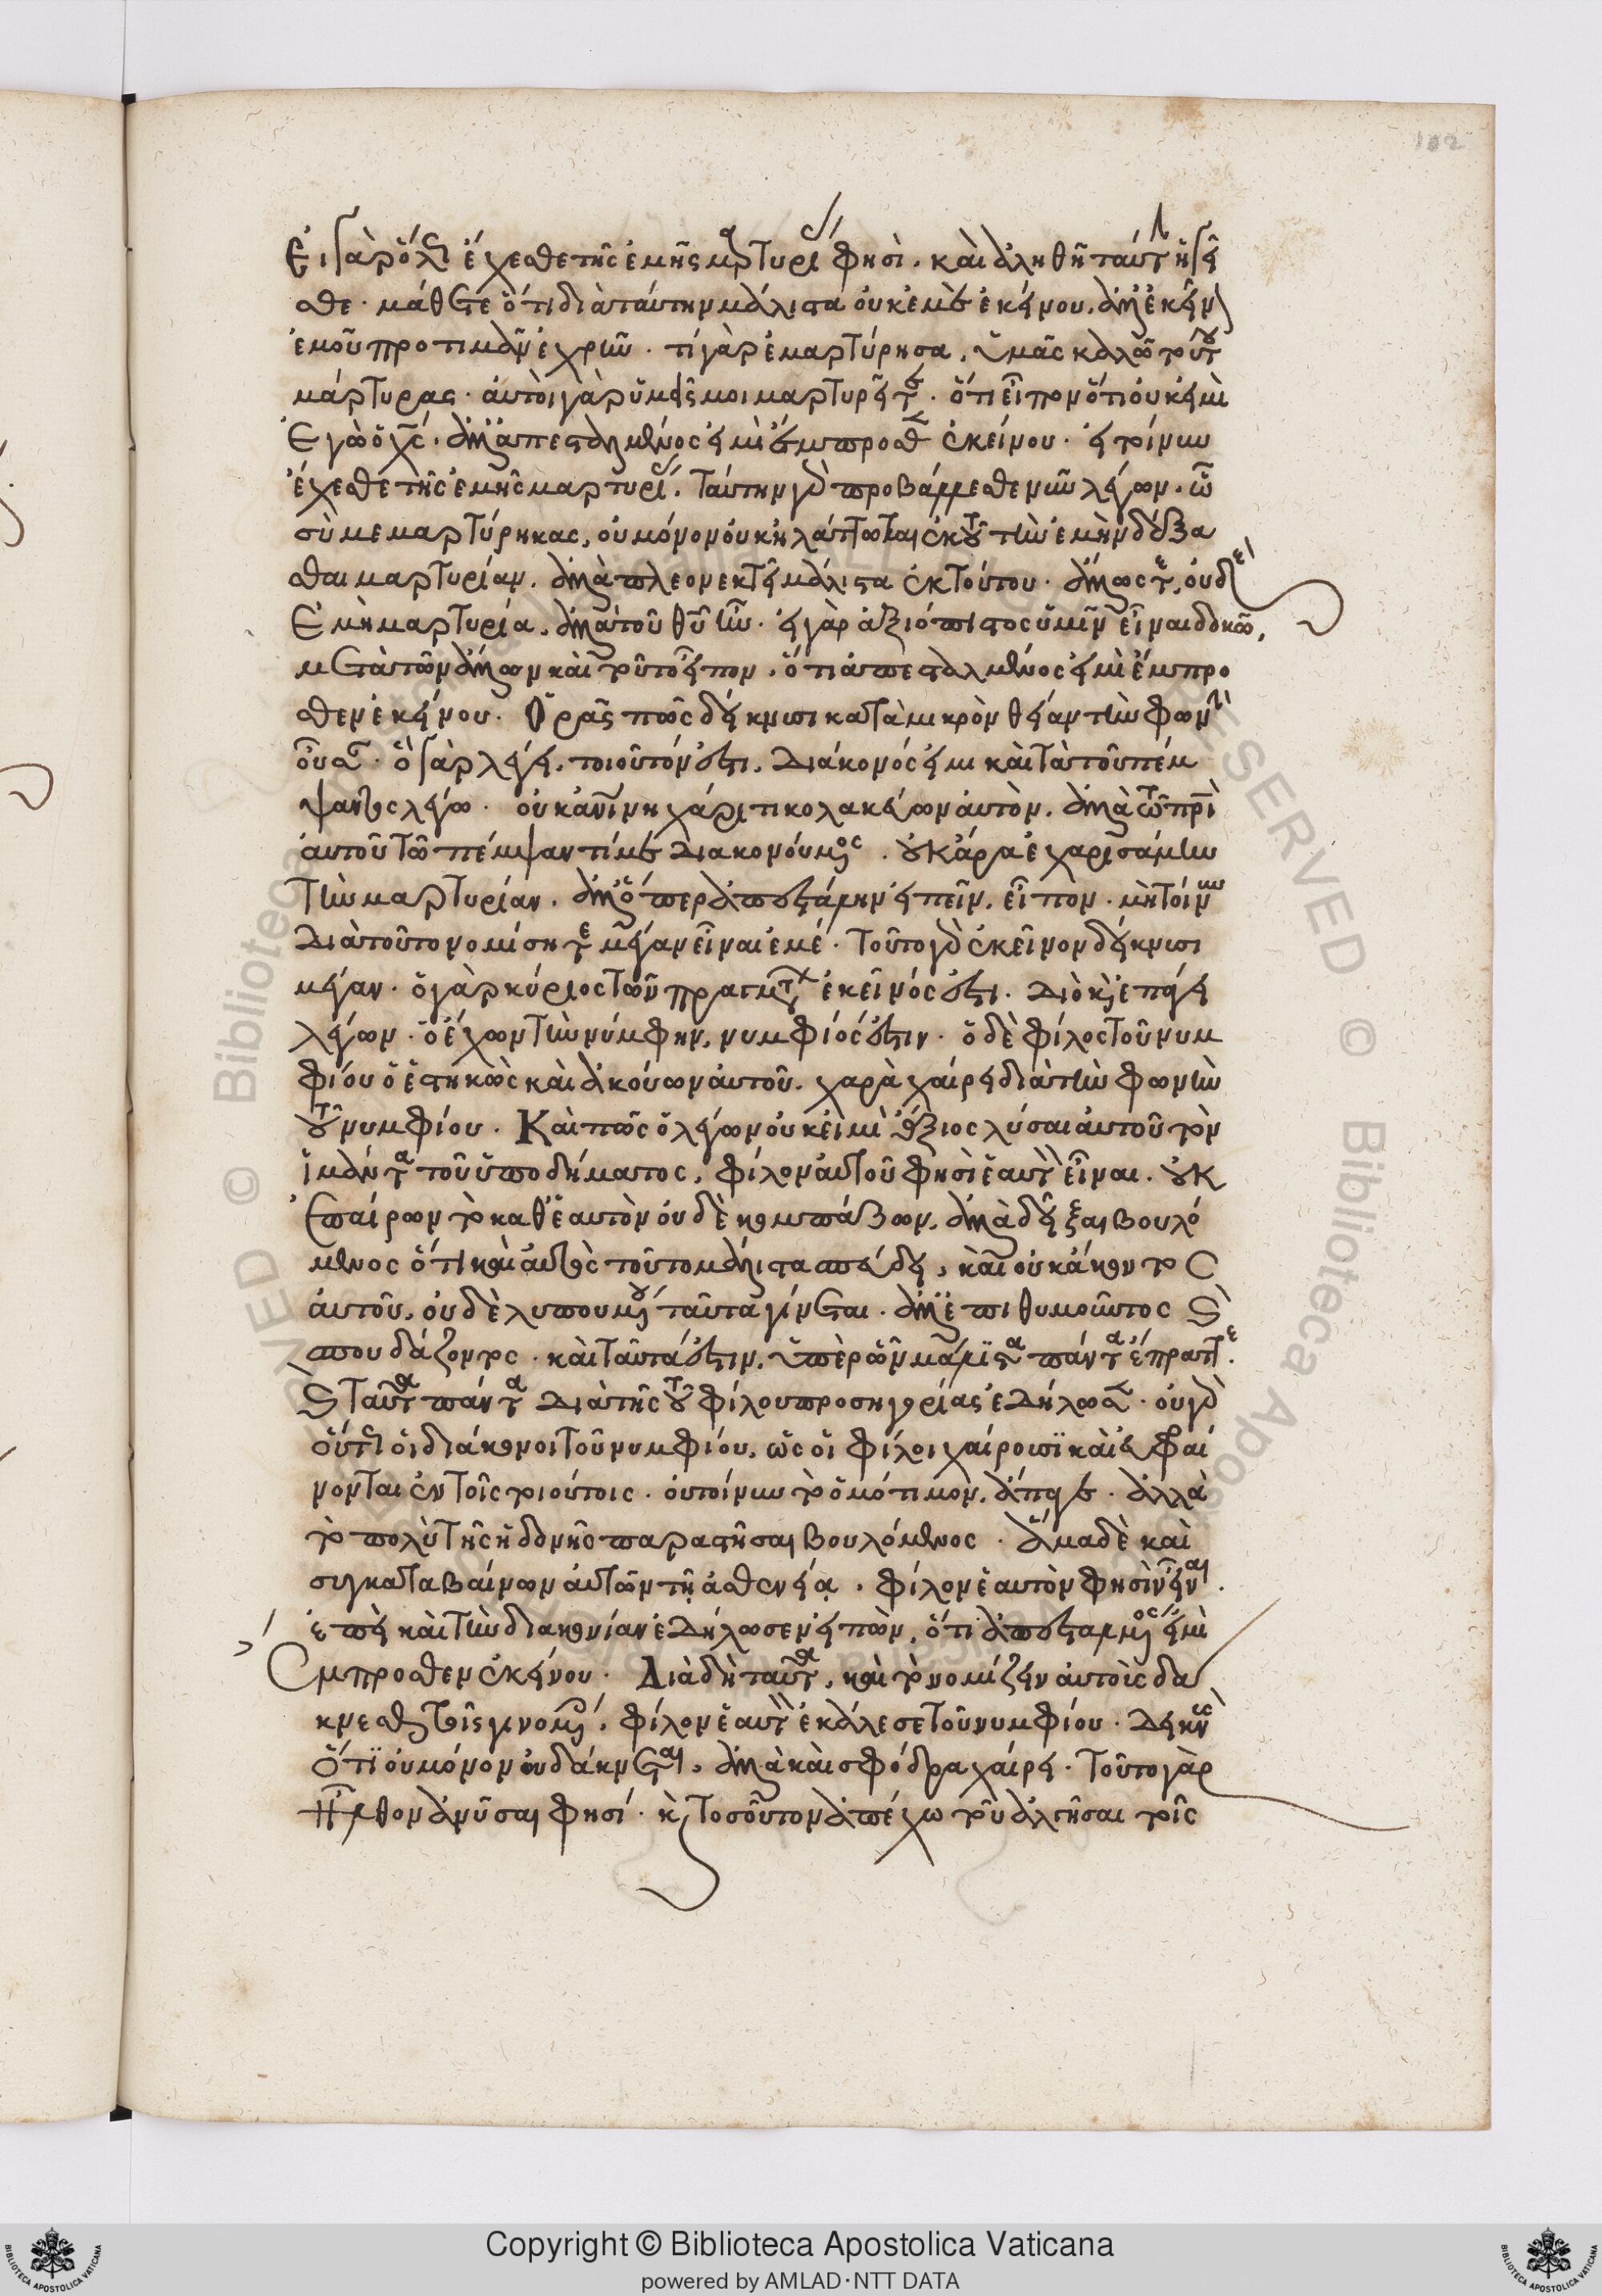 102
Εἰ γὰρ ὅλως ἔχεσθε τῆς ἐμῆς μαρτυρίας φησὶ. καὶ ἀληθῆ ταύτην ἡγεῖ
σθε. μάθετε ὅτι διὰ ταύτην μάλιστα οὐκ ἐμὲ ἐκείνου. ἀλλ' ἐκεῖνον
ἐμοῦ προτιμᾶν ἐχρῆν. τί γὰρ ἐμαρτύρησα, ὑμᾶς καλῶ τούτου
μάρτυρας. αὐτοὶ γὰρ ὑμεῖς μοι μαρτυρεῖτε. ὅτι εἶπον ὅτι οὐκ εἰμὶ
ἐγὼ ὁ χς. ἀλλ' ἀπεσταλμένος εἰμὶ ἔμπροσθεν ἐκείνου. εἰ τοίνυν
ἔχεσθε τῆς ἐμῆς μαρτυρίας. ταύτην γὰρ προβάλλεσθε νῦν λέγων. ὧ
σὺ μεμαρτύρηκας, οὐ μόνον οὐκ ἠλάττωται ἐκ τοῦ τὴν ἐμὴν δέξα
σθαι μαρτυρίαν. ἀλλὰ πλεονεκτεῖ μάλιστα ἐκ τούτου. ἄλλως τε, οὐδὲ
ἐμὴ μαρτυρία. ἀλλὰ τοῦ θυ ἦν. εἰ γὰρ ἀξιόπιστος ὑμῖν εἶναι δοκῶ,
μετὰ τῶν ἄλλων καὶ τοῦτο εἶπον. ὅτι ἀπεσταλμένος εἰμὶ ἔμπρο
σθεν ἐκείνου. Ὁρᾶς πῶς δείκνυσι κατὰ μικρὸν θείαν τὴν φωνὴν
οὖσαν. ὃ γὰρ λέγει. τοιοῦτόν ἐστι. Διάκονός εἰμι καὶ τὰ τοῦ πέμ
ψαντος λέγω. οὐκ ἀνινη χάριτι κολακεύων αὐτὸν. ἀλλὰ τῶ πρὶ
αὐτοῦ τῶ πέμψαντί με διακονούμενος. οὐκ ἄρα ἐχαρισάμην
τὴν μαρτυρίαν. ἀλλ' ὅπερ ἀπεστάλην εἰπεῖν. εἶπον. μὴ τοίνυν
διὰ τοῦτο νομίσητε μέγαν εἶναι ἐμέ. τοῦτο γὰρ ἐκεῖνον δείκνυσι
μέγαν. ὁ γὰρ κύριος τῶν πραγμάτων ἐκεῖνός ἐστι. διὸ καὶ ἐπάγει
λέγων. ὁ ἔχων τὴν νύμφην, νυμφίος ἐστιν. ὁ δὲ φίλος τοῦ νυμ
φίου ὁ ἑστηκὼς καὶ ἀκούων αὐτοῦ. χαρᾶ χαίρει διὰ τὴν φωνὴν
τοῦ νυμφίου. Καὶ πῶς ὁ λέγων οὐκ εἰμὶ ἄξιος λῦσαι αὐτοῦ τὸν
ἱμάντα τοῦ ὑποδήματος, φίλον αὐτοῦ φησὶ ἑαυτὸν εἶναι. οὐκ
ἐπαίρων τὸ καθ' ἑαυτὸν οὐδὲ κομπάζων. ἀλλὰ δεῖξαι βουλό
μενος ὅτι καὶ αὐτὸς τοῦτο μάλιστα σπεύδει, καὶ οὐκ ἄκοντος
αὐτοῦ, οὐδὲ λυπουμένου ταῦτα γίνεται. ἀλλ' ἐπιθυμοῦντος καὶ
σπουδάζοντος. καὶ ταῦτά ἐστιν, ὑπὲρ ὧν μάλιστα πάντα ἔπραττε.
καὶ ταῦτα πάντα διὰ τῆς τοῦ φίλου προσηγορίας ἐδήλωσεν. οὐ γὰρ
οὕτως οἱ διάκονοι τοῦ νυμφίου, ὡς οἱ φίλοι χαίρουσι καὶ εὐφραί
νονται ἐν τοῖς τοιούτοις. οὐ τοίνυν τὸ ὁμότιμον. ἄπαγε. ἀλλὰ
τὸ πολὺ τῆς ἡδονῆς παραστῆσαι βουλόμενος. ἅμα δὲ καὶ
συγκαταβαίνων αὐτῶν τῆ ἀσθενεία. φίλον ἑαυτὸν φησὶν εἶναι.
ἐπεὶ καὶ τὴν διακονίαν ἐδήλωσεν εἰπὼν, ὅτι ἀπεσταλμένος εἰμὶ
ἔμπροσθεν ἐκείνου. Διὰ δὴ ταῦτα, καὶ τὸ νομίζειν αὐτοὺς δά
κνεσθαι τοῖς γινομένοις, φίλον ἑαυτὸν ἐκάλεσε τοῦ νυμφίου. δεικνὺς
ὅτι οὐ μόνον οὐ δάκνεται, ἀλλὰ καὶ σφόδρα χαίρει. τοῦτο γὰρ
ἦλθον ἀνῦσαι φησί. καὶ τοσοῦτον ἀπέχω τοῦ ἀλγῆσαι τοῖς
Copyright © Biblioteca Apostolica Vaticana
powered by AMLAD·NTT DATA